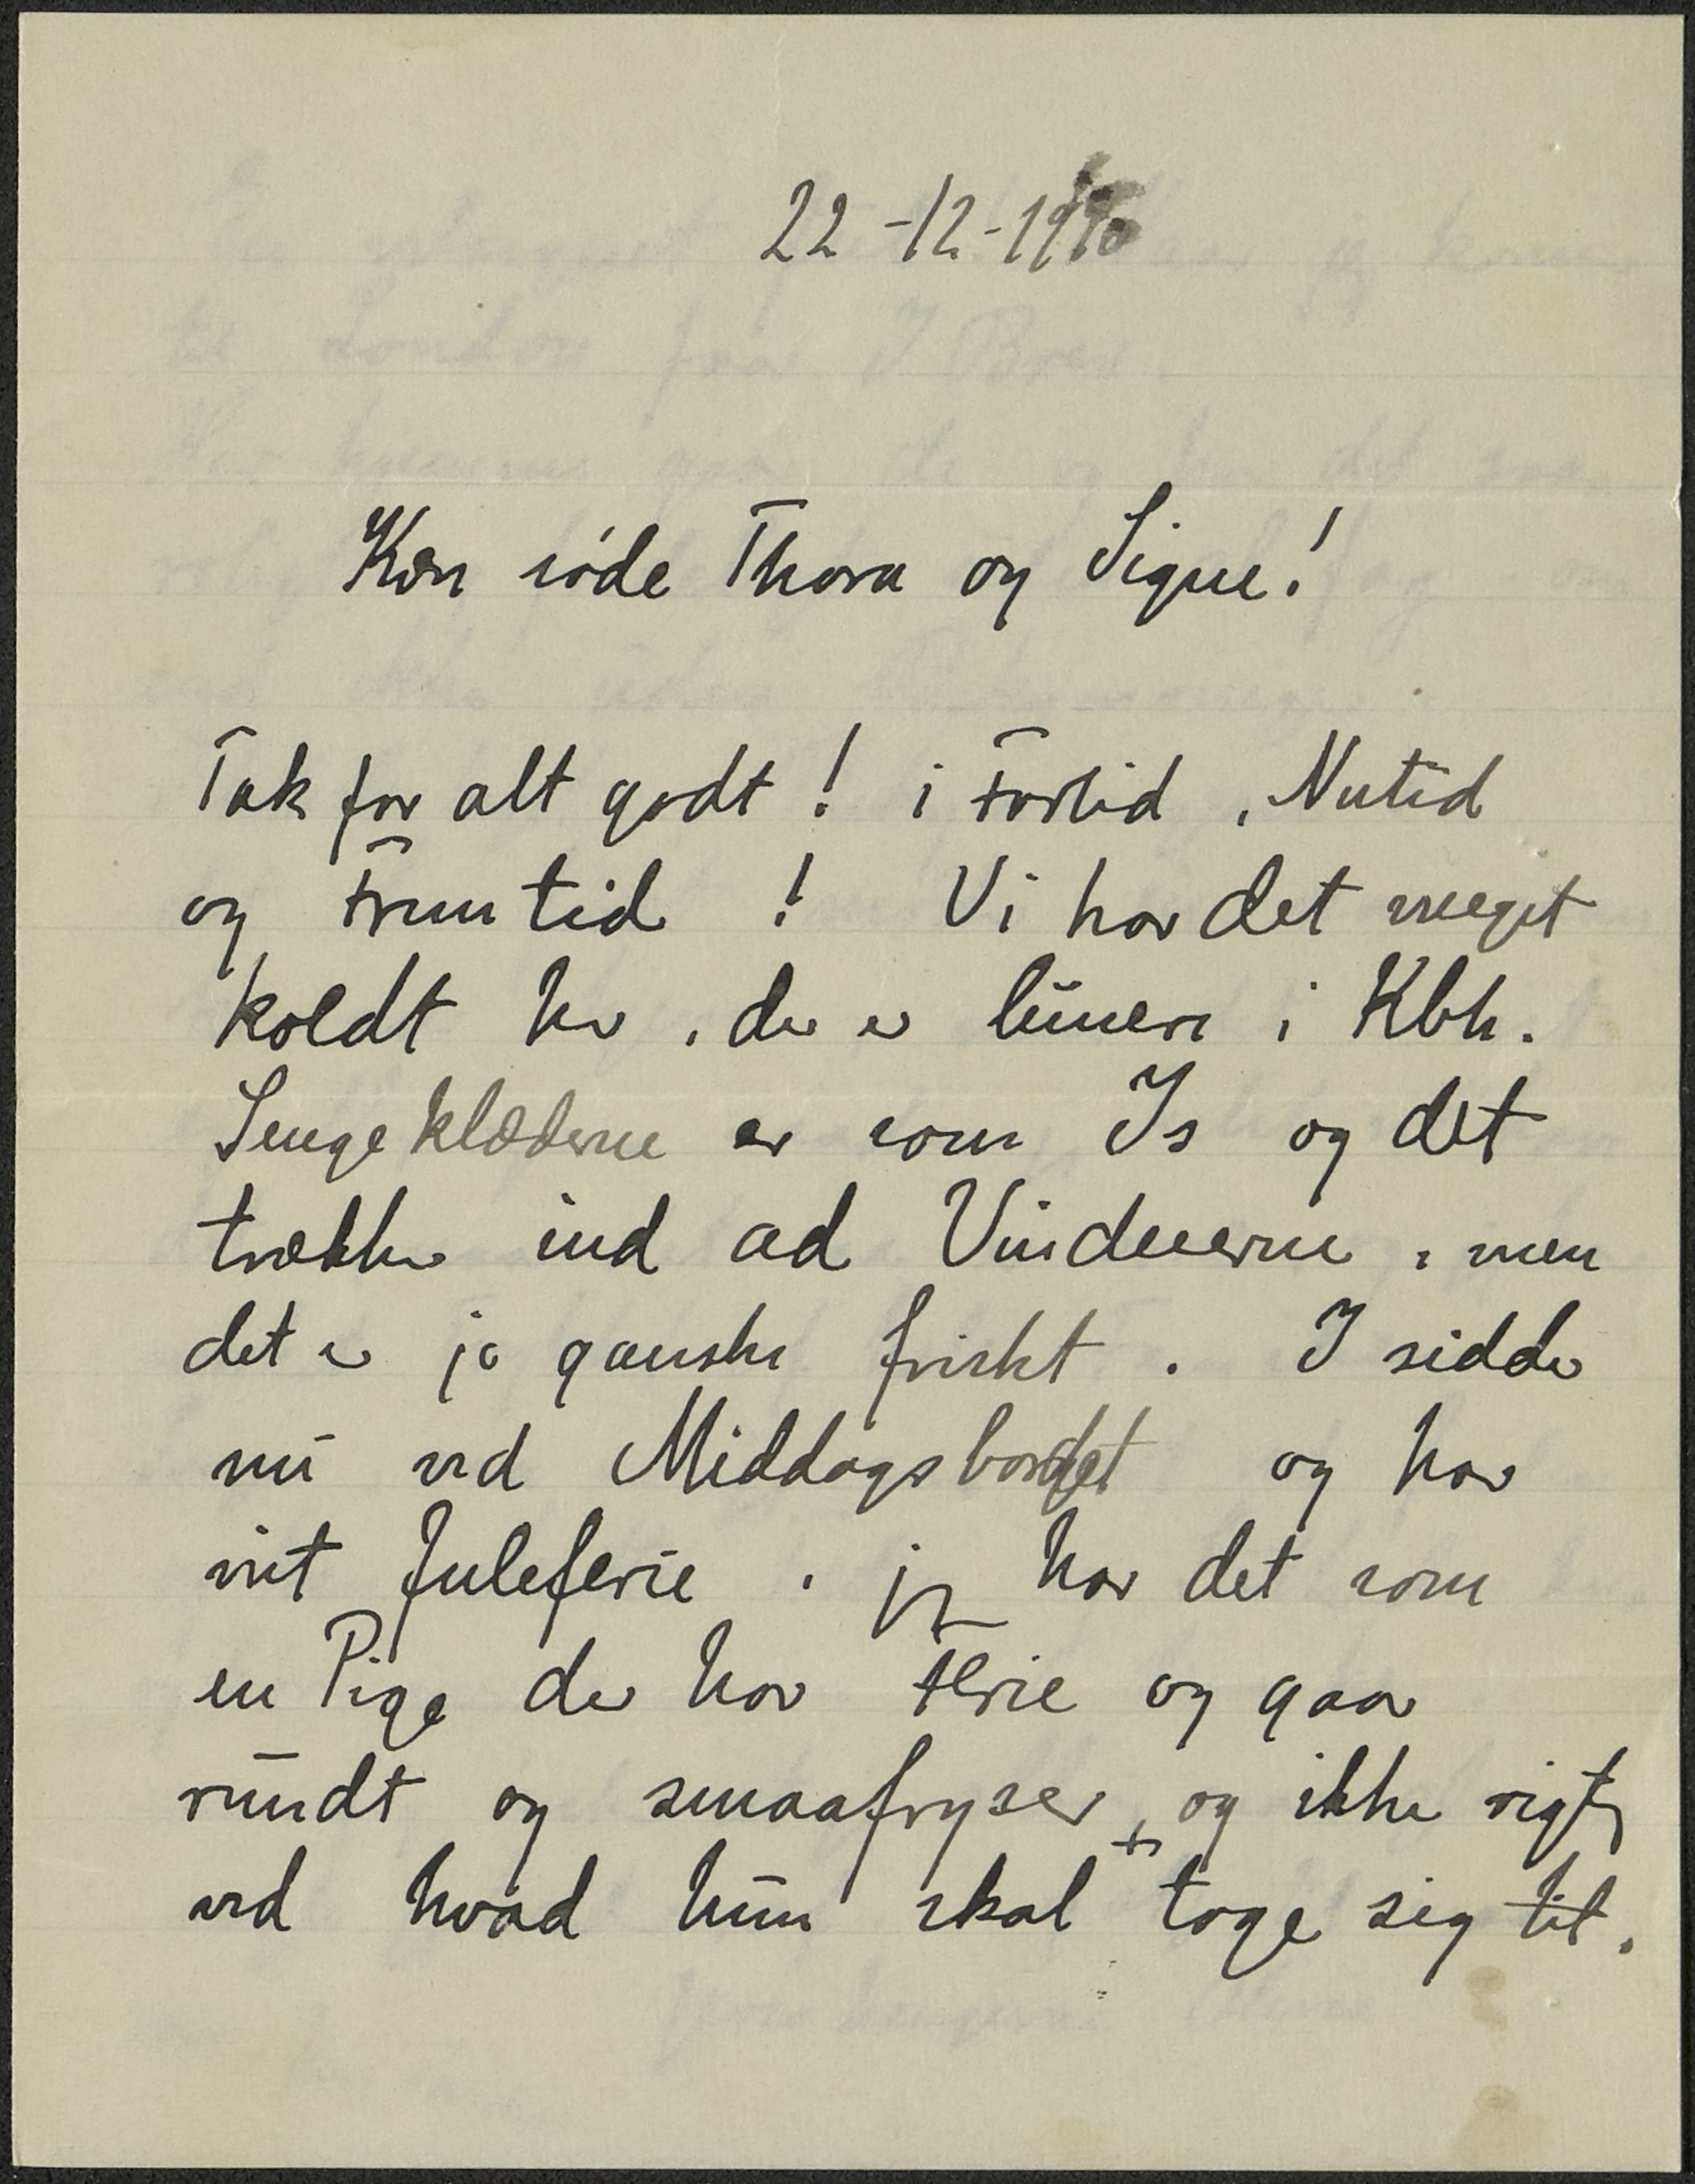 22-12-19
Kære søde Thora og Signe!
Tak for alt godt! i Fortid, Nutid
og Fremtid! Vi har det meget
koldt her, der er lunere i Kbh.
Sengeklæderne er som Is og det
trækker ind ad Vinduerne, men
det er jo ganske friskt. I sidder
nu ved Middagsbordet og har
vist Juleferie. jeg har det som
en Pige der har Ferie og gaar
rundt og smaafryser, og ikke rigtig
ved hvad hun skal tage sig til.